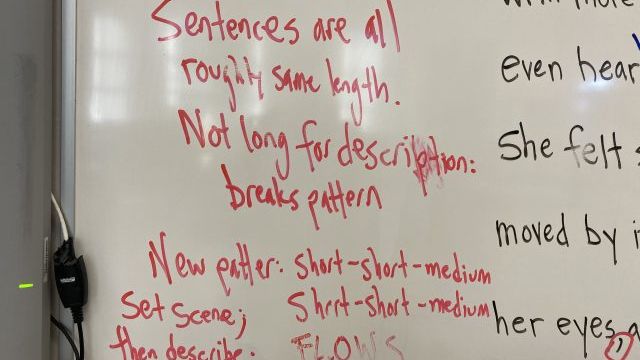 Sentences are all
roughly same length.
Not long for description:
breaks pattern
New patter: short-short-medium
Set Scene; Short-short-medium
then describe. FLOWS
even hear
She felt
moved by
her eyes
1